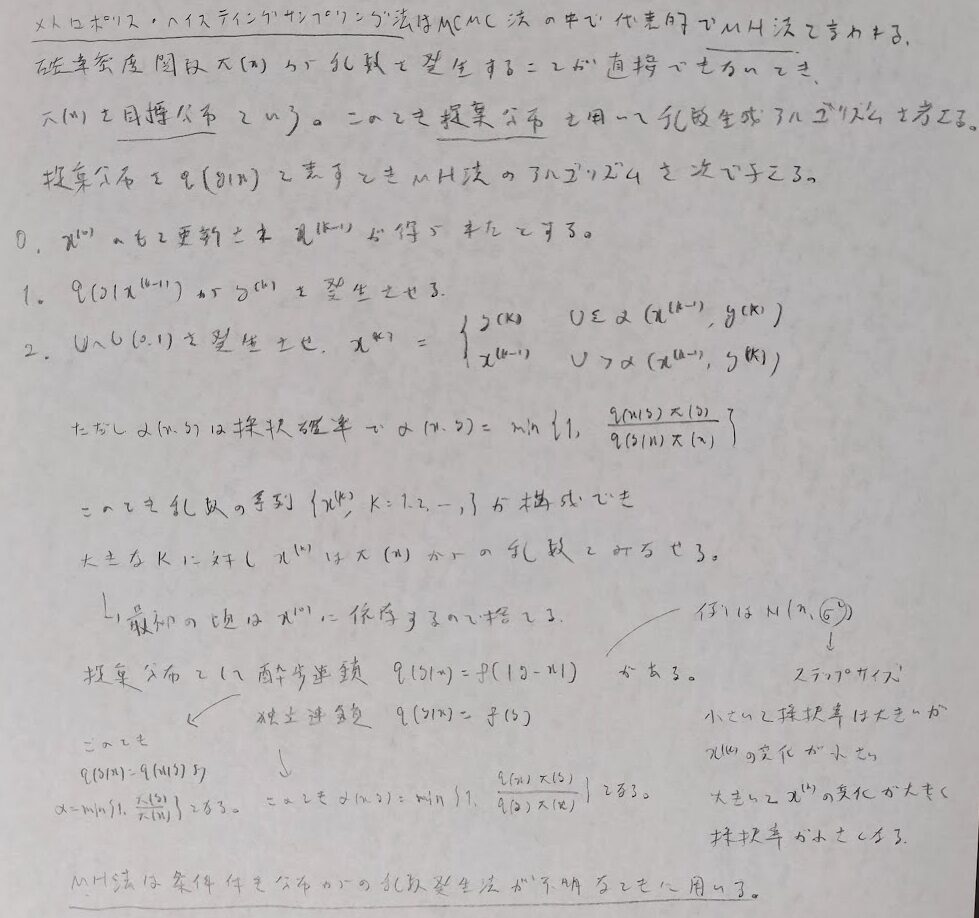 メトロポリス・ヘイスティングサンプリング法はMCMC法の中で代表的でMH法と言われる。
確率密度関数π(x)から乱数を発生することが直接できないとき、
π(x)を目標分布という。このとき提案分布を用いて乱数生成アルゴリズムを考える。
提案分布をq(y|x)と表すときMH法のアルゴリズムを次で与える。
0. x^(0)のもと更新され x^(k-1)が得られたとする。
1. q(y|x^(k-1))からy^(k)を発生させる.
2. U~U(0,1)を発生させ, x^(k) = { y^(k) U≦α(x^(k-1), y^(k))
x^(k-1) U>α(x^(k-1), y^(k))
ただしα(x,y)は採択確率でα(x,y) = min{1, q(x|y)π(y) / q(y|x)π(x)}
このとき乱数の系列{x^(k), k=1,2,…,}が構成でき
大きなkに対しx^(k)はπ(x)からの乱数とみなせる。
↳最初の頃はx^(0)に依存するので捨てる.
提案分布として酔歩連鎖 q(y|x)=f(|y-x|) がある。
独立連鎖 q(y|x)=f(y)
例えばN(x,σ²)
↓
ステップサイズ
小さいと採択率は大きいが
x^(k)の変化が小さい
大きいとx^(k)の変化が大きく
採択率が小さくなる.
このとき
q(y|x)=q(x|y)より
α=min{1, π(y)/π(x)}となる。
このときα(x,y)=min{1, q(x)π(y) / q(y)π(x)}となる。
MH法は条件付き分布からの乱数発生法が不明なときに用いる。